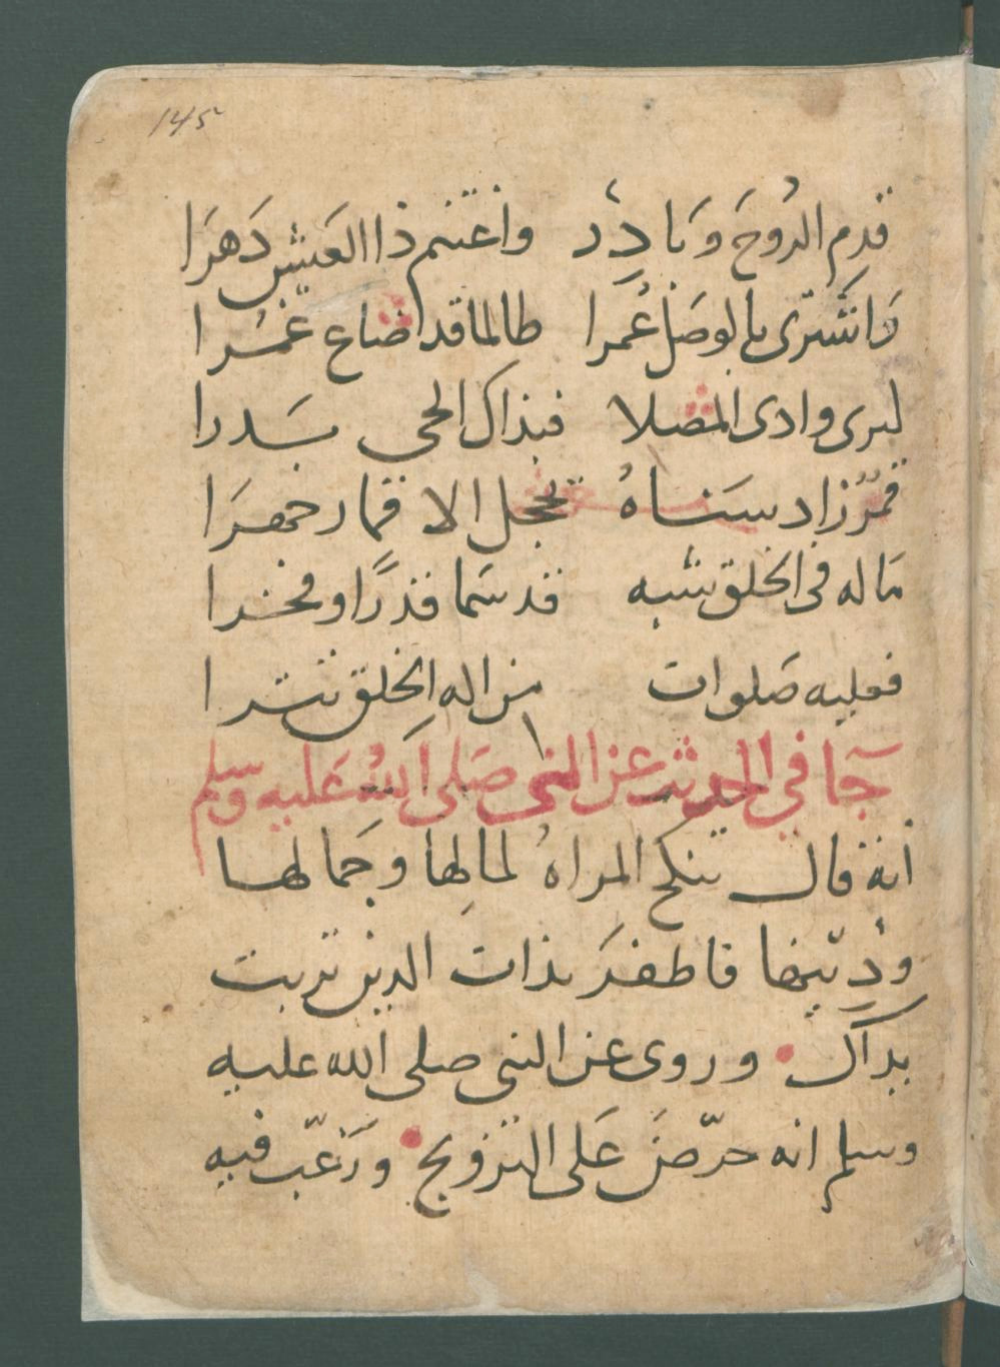 145
قدم الروح وبادر واغتنم ذا العيش دهرا
واشترى بالوصل عمرا طالما قد اضاع عمرا
لترى وادى المصلا فبذاك الحى بدرا
قمر زاد سناه تخجل الاقمار جهرا
ماله فى الخلق شبه قد سما قدرًا وفخرا
فعليه صلوات من اله الخلق تترا
جا في الحديث عن النبى صلى الله عليه وسلم
انه قال تنكح المراه لمالها وجمالها
ودينها فاظفر بذات الدين تربت
يداك وروى عن النبى صلى الله عليه
وسلم انه حرّض على التزويج ورغّب فيه